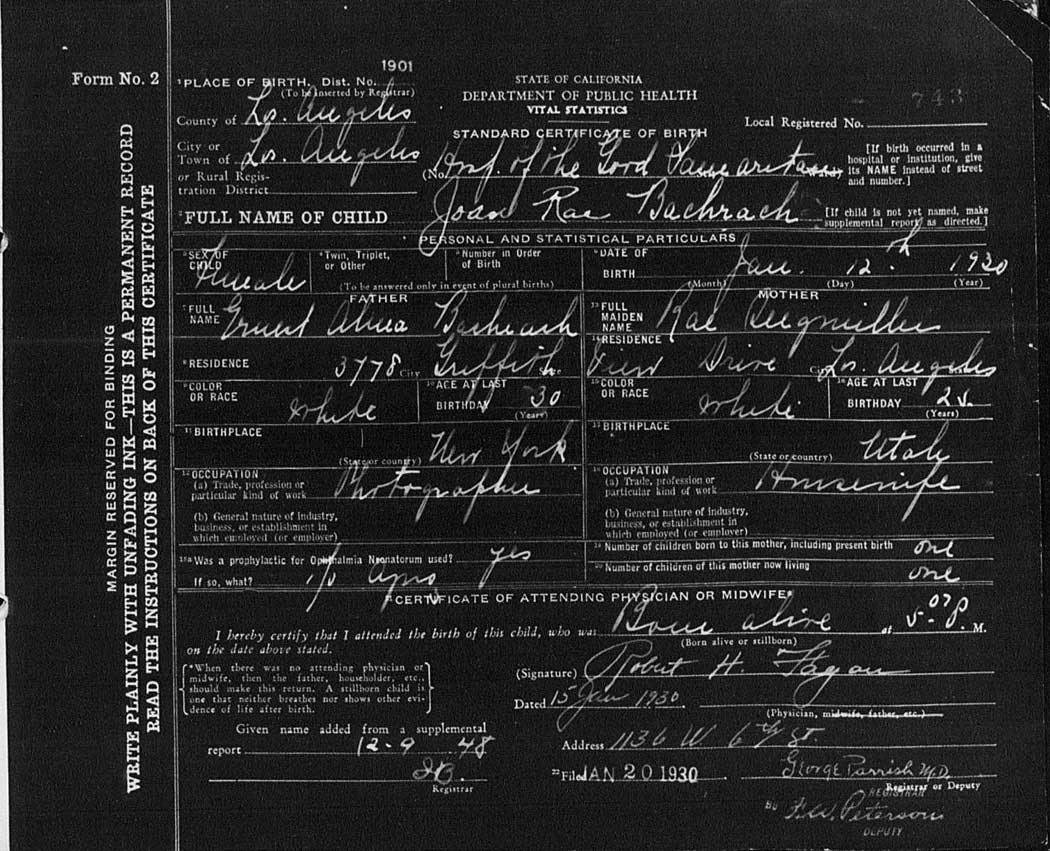 1901
Form No. 2
MARGIN RESERVED FOR BINDING
WRITE PLAINLY WITH UNFADING INK—THIS IS A PERMANENT RECORD
READ THE INSTRUCTIONS ON BACK OF THIS CERTIFICATE
¹PLACE OF BIRTH, Dist. No.
(To be inserted by Registrar)
County of Los. Angeles
City or Town of Los. Angeles
or Rural Registration District
STATE OF CALIFORNIA
DEPARTMENT OF PUBLIC HEALTH
VITAL STATISTICS
STANDARD CERTIFICATE OF BIRTH
743
Local Registered No.
(No. Hosp. of the Good Samaritan
[If birth occurred in a
hospital or institution, give
its NAME instead of street
and number.]
²FULL NAME OF CHILD Joan Rae Bachrach
[If child is not yet named, make
supplemental report, as directed.]
PERSONAL AND STATISTICAL PARTICULARS
³SEX OF CHILD Female
⁴Twin, Triplet, or Other
⁵Number in Order of Birth
(To be answered only in event of plural births)
⁶DATE OF BIRTH Jan. 12th 1930
(Month) (Day) (Year)
FATHER
⁷FULL NAME Ernest Bachrach
MOTHER
¹³FULL MAIDEN NAME Rae
⁸RESIDENCE 3778 Griffith
City State
¹⁴RESIDENCE View Drive City Los. Angeles
⁹COLOR OR RACE White
¹⁰AGE AT LAST BIRTHDAY 30
(Years)
¹⁵COLOR OR RACE White
¹⁶AGE AT LAST BIRTHDAY 25.
(Years)
¹¹BIRTHPLACE
(State or country) New York
¹⁷BIRTHPLACE
(State or country) Utah
¹²OCCUPATION
(a) Trade, profession or
particular kind of work Photographer
(b) General nature of industry,
business, or establishment in
which employed (or employer)
¹⁸OCCUPATION
(a) Trade, profession or
particular kind of work Housewife
(b) General nature of industry,
business, or establishment in
which employed (or employer)
¹⁸ᵃWas a prophylactic for Ophthalmia Neonatorum used? yes
If so, what?
¹⁹Number of children born to this mother, including present birth one
²⁰Number of children of this mother now living one
²¹CERTIFICATE OF ATTENDING PHYSICIAN OR MIDWIFE*
I hereby certify that I attended the birth of this child, who was Born alive at 5-07 P. M.
(Born alive or stillborn)
on the date above stated.
*When there was no attending physician or
midwife, then the father, householder, etc.,
should make this return. A stillborn child is
one that neither breathes nor shows other evi-
dence of life after birth.
(Signature) Robert H. Fagan
Dated 15 Jan 1930
(Physician, midwife, father, etc.)
Given name added from a supplemental
report 12-9 48
Registrar
Address 1136 W 6th St.
²²Filed JAN 20 1930
George Parrish M.D.
Registrar or Deputy
REGISTRAR
BY F.W. Peterson
DEPUTY